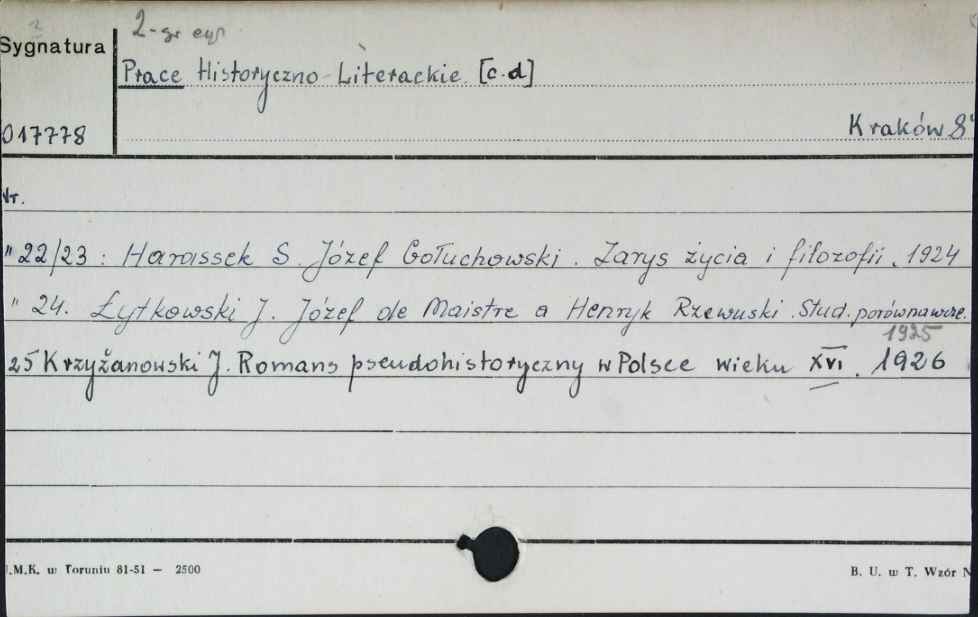 2-gi egz
Sygnatura
Prace Historyczno-Literackie. [c.d]
017778
Kraków 8°
Nr.
" 22/23 : Harassek S. Józef Gołuchowski. Zarys życia i filozofii. 1924
" 24. Żytkowski J. Józef de Maistre a Henryk Rzewuski. Stud. porównawcze.
1925
25 Krzyżanowski J. Romans pseudohistoryczny w Polsce wieku XVI. 1926
.M.K. w Toruniu 81-51 — 2500
B. U. w T. Wzór N